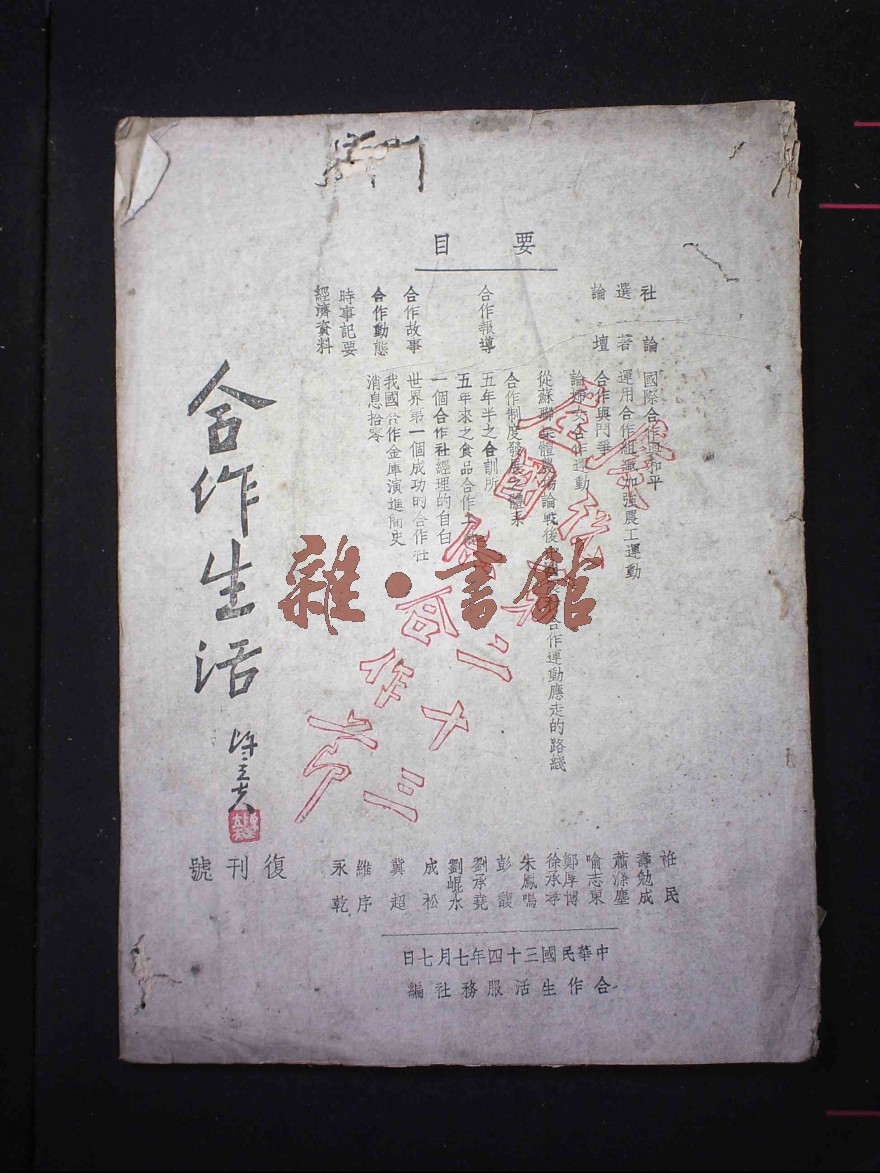 要目
社論
國際合作與和平
選著
運用合作組織加強農工運動
論壇
合作與鬥爭
論婦女合作運動
從蘇聯 體農場論戰後 合作運動應走的路綫
合作報導
合作制度發展之體系
五年半之合訓所
五年來之食品合作工
合作故事
一個合作社經理的自白
世界第一個成功的合作社
合作動態
我國合作金庫演進簡史
時事記要
消息拾零
經濟資料
合作生活
復刊號
民
壽勉成
蕭滌塵
喻志東
鄭厚博
徐承孝
朱鳳鳴
彭馥
劉承堯
劉崐水
成松
冀超
維序
永乾
中華民國三十四年七月七日
合作生活服務社編
全國合作
二十三
雜·書館